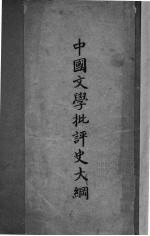 中國文學批評史大綱